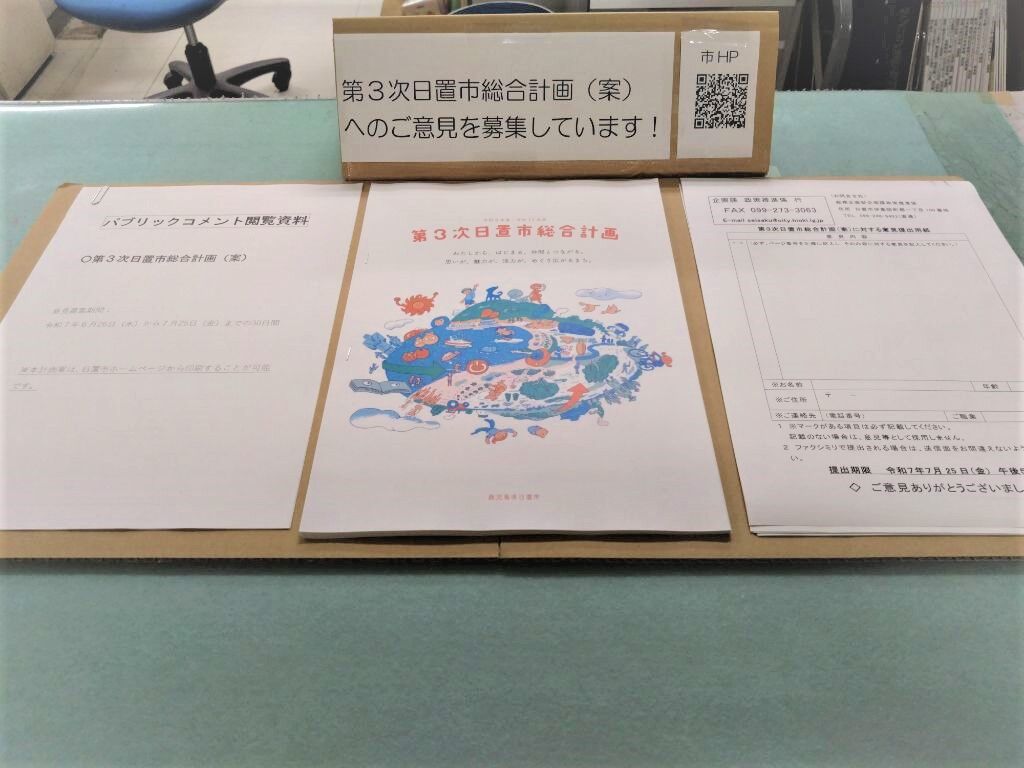 第3次日置市総合計画（案）
へのご意見を募集しています！
市HP
パブリックコメント閲覧資料
〇第3次日置市総合計画（案）
意見募集期間：
令和7年6月26日（木）から7月25日（金）までの30日間
※本計画案は、日置市ホームページから印刷することが可能
です。
第3次日置市総合計画
わたしから、はじまる。仲間とつながる。
思いが、魅力が、活力が、めぐり広がるまち。
鹿児島県日置市
企画課 政策推進係 行
FAX 099-273-3063
（お問合せ先）
第3次日置市総合計画（案）に対する意見提出用紙
意 見 内 容
※お名前
年齢
※ご住所
〒 －
※ご連絡先
（電話番号）
ご職業
1 ※マークがある項目は必ず記載してください。
記載のない場合は、意見等として採用しません。
2 ファクシミリで提出される場合は、送信面をお間違えないよう
い。
提出期限 令和7年7月25日（金） 午後
◇ ご意見ありがとうございまし